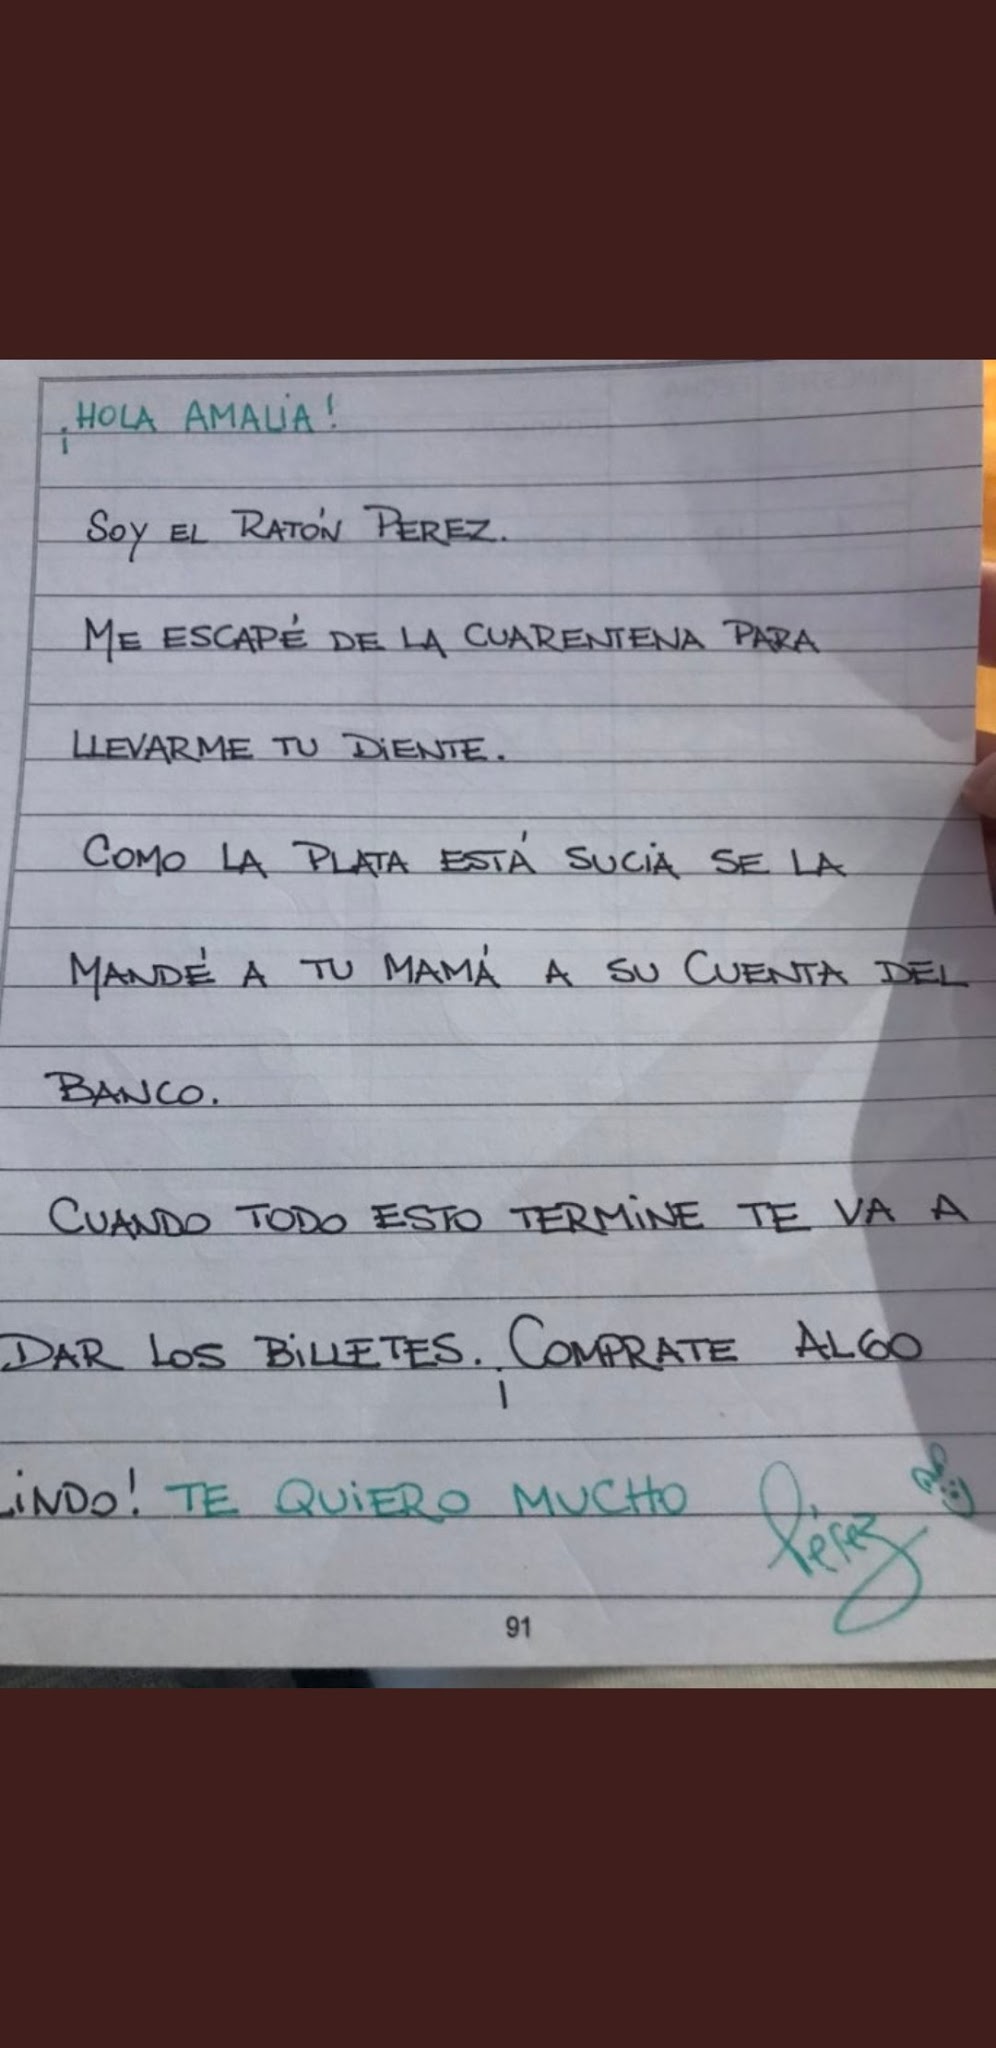 ¡HOLA AMALIA!
SOY EL RATÓN PEREZ.
ME ESCAPÉ DE LA CUARENTENA PARA
LLEVARME TU DIENTE.
COMO LA PLATA ESTÁ SUCIA SE LA
MANDÉ A TU MAMÁ A SU CUENTA DEL
BANCO.
CUANDO TODO ESTO TERMINE TE VA A
DAR LOS BILLETES. ¡COMPRATE ALGO
LINDO! TE QUIERO MUCHO Pérez
91